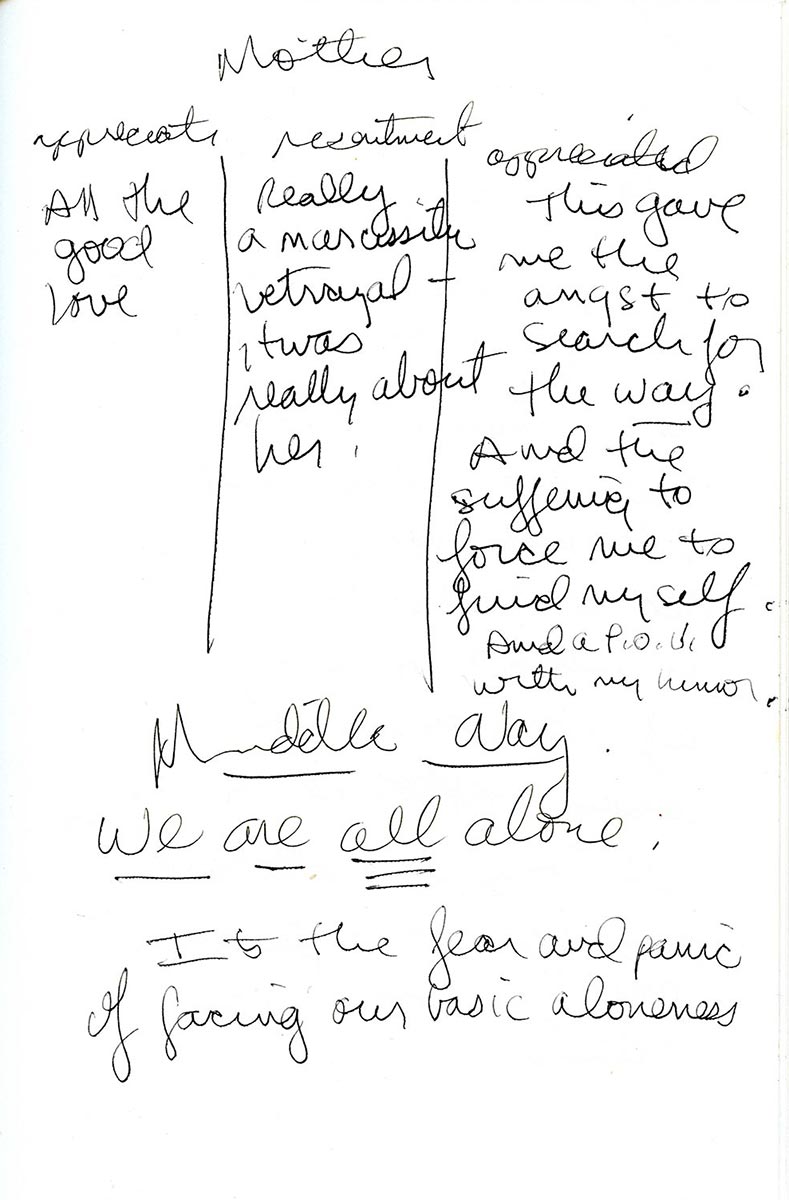 Mother
appreciate
All the
good
love
resentment
really
a narcissistic
betrayal –
it was
really about
her.
appreciated
This gave
me the
angst to
search for
the way.
And the
suffering to
force me to
find myself.
And a P.O.V.
with my humor.
Middle Way.
We are all alone.
Its the fear and panic
of facing our basic aloneness